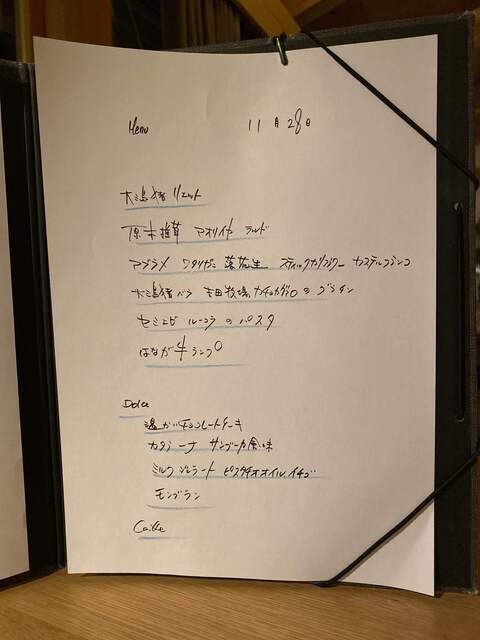 Menu 11月28日
大島猪 リエット
原木椎茸 アオリイカ ラルド
アブラメ ワタリガニ 落花生 スティックカリフラワー カステルフランコ
大島猪バラ 吉田牧場カチョカヴァロのグラタン
セミエビ ルーコラのパスタ
はなが牛ランプ
Dolce
温かいチョコレートケーキ
カタラーナ サンブーカ風味
ミルクジェラート ピスタチオオイル、イチゴ
モンブラン
Caffe